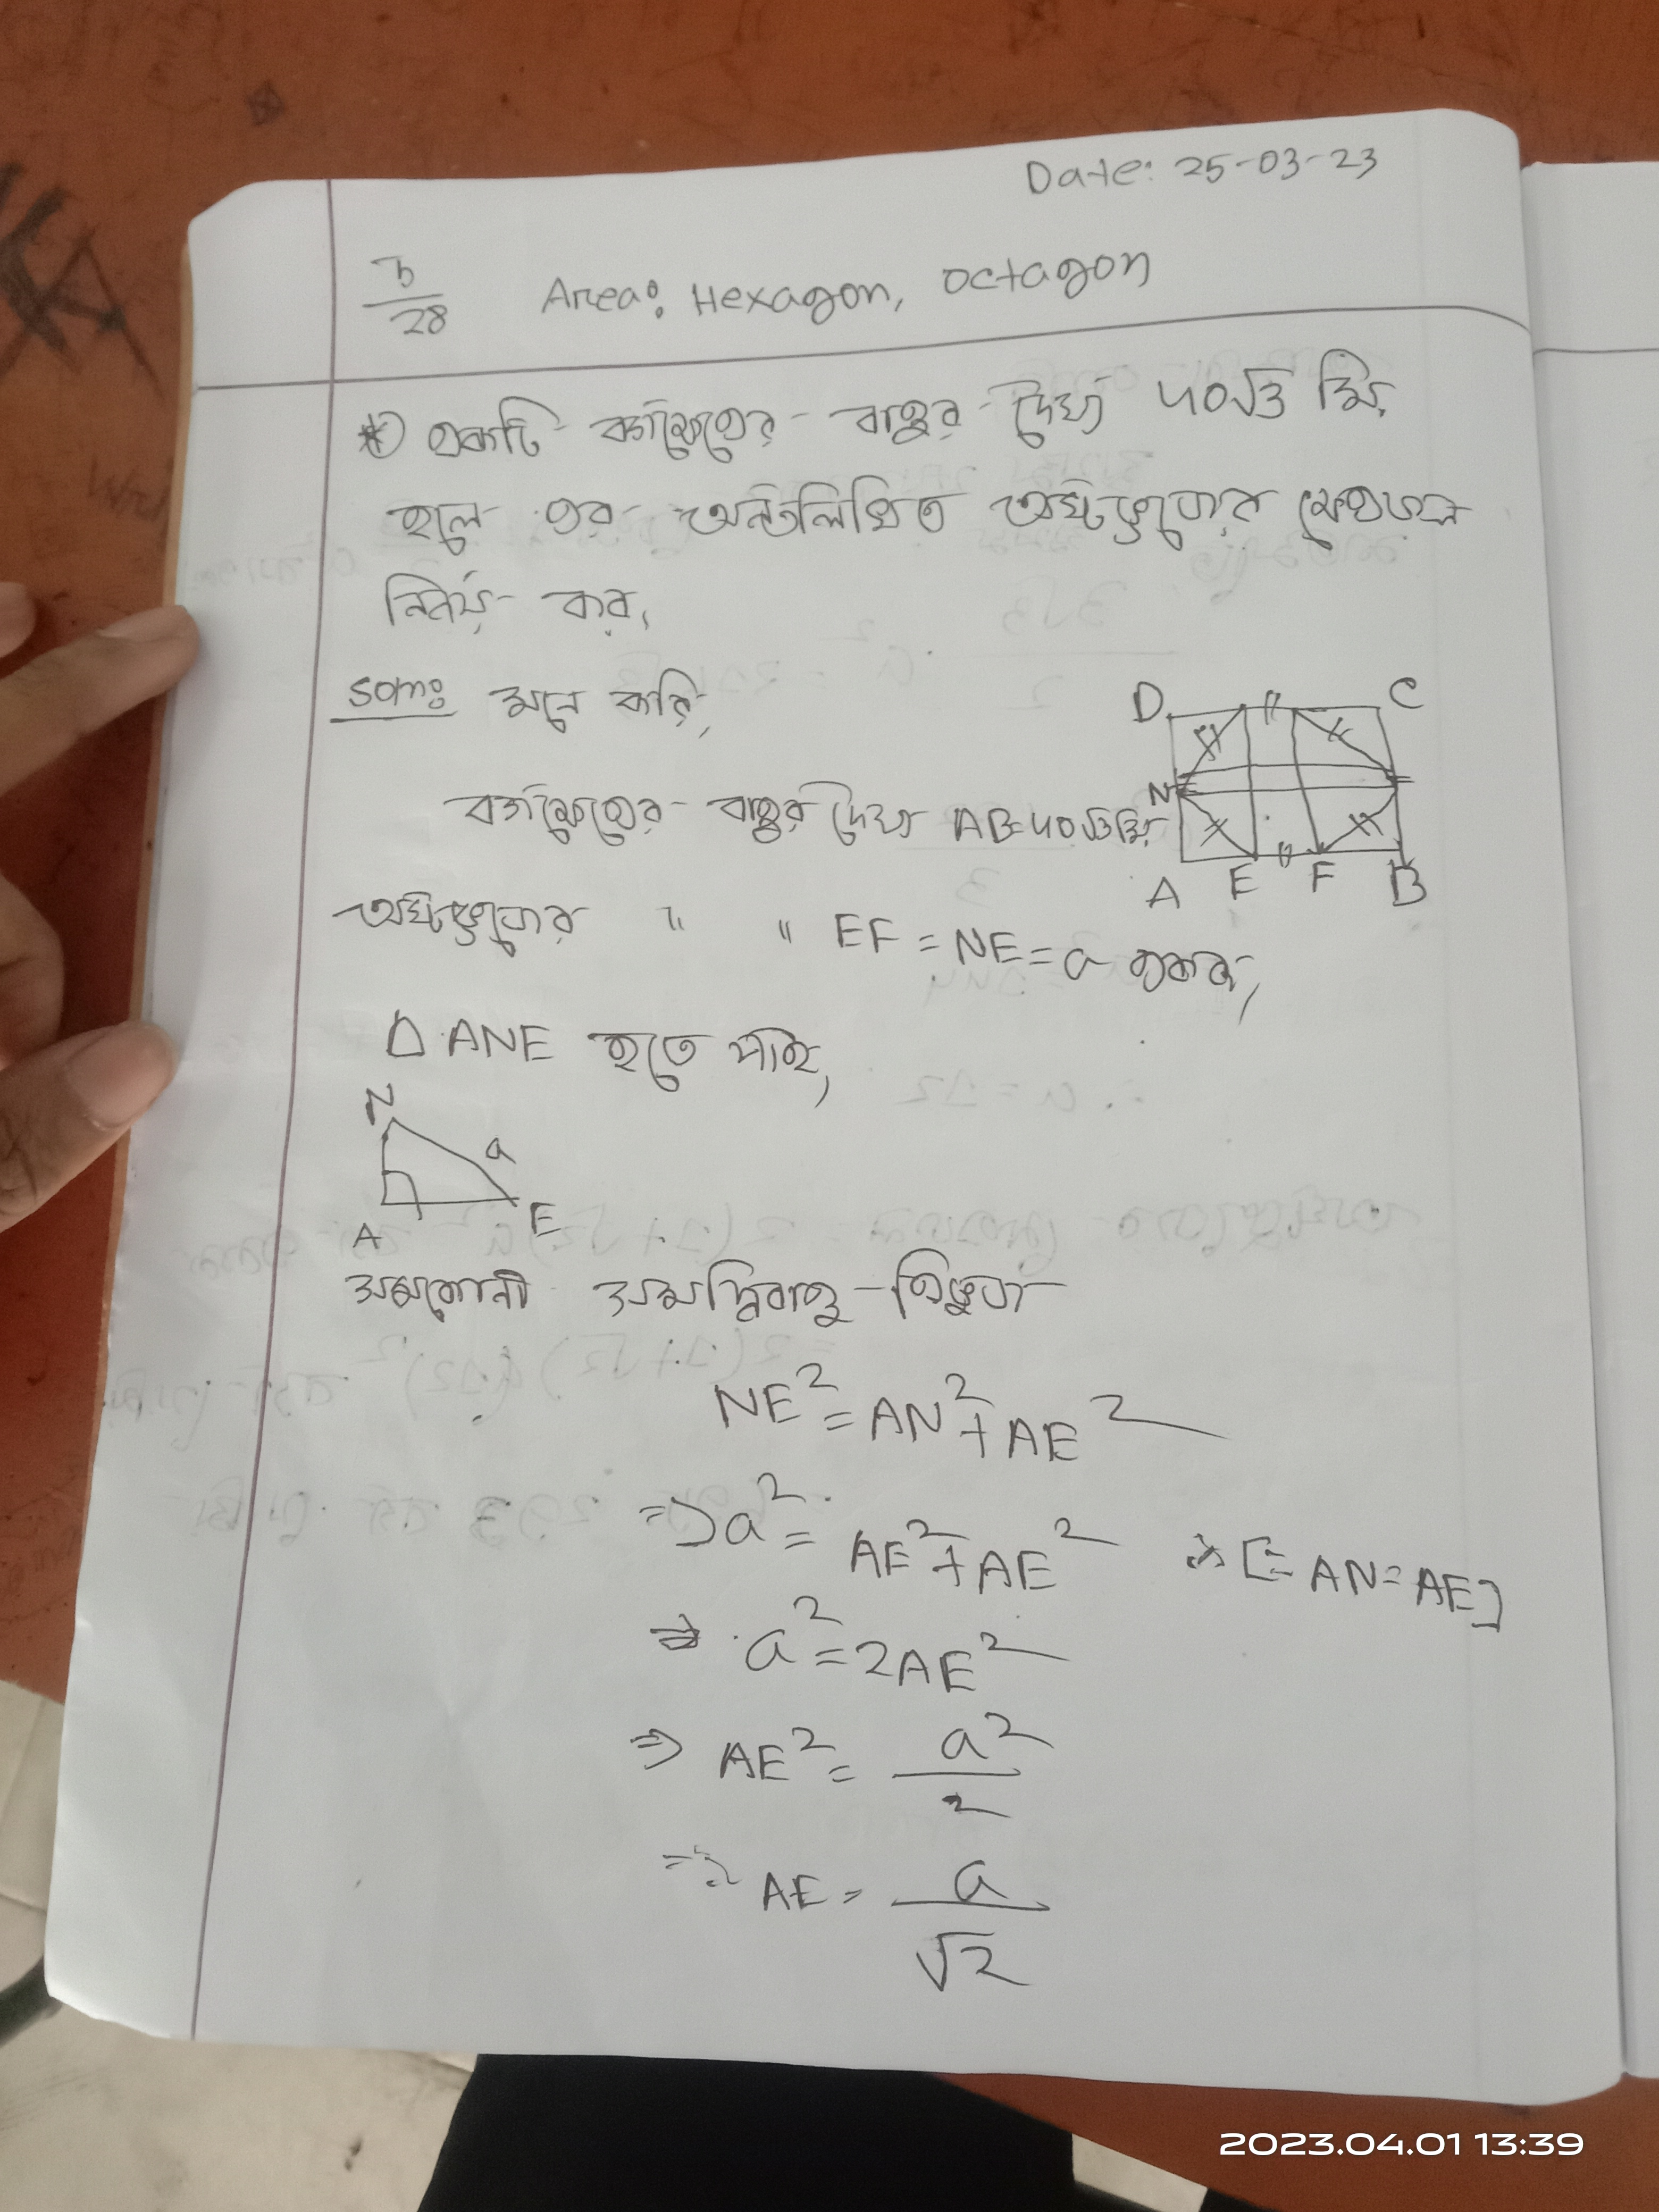 Date: 25-03-23
Area: Hexagon, octagon
28
একটি বর্গক্ষেত্রের বাহুর দৈর্ঘ্য ৫০√3 মি.
হলে এর অন্তর্লিখিত অষ্টভুজের ক্ষেত্রফল
নির্ণয় কর,
Som: মনে করি,
D C
বর্গক্ষেত্রের বাহুর দৈর্ঘ্য AB=৫০√3 মি.
N
A E F B
অষ্টভুজের " " EF = NE = a একক,
Δ ANE হতে পাই,
N
a
A E
সমকোনী সমদ্বিবাহু ত্রিভুজ
NE² = AN² + AE²
=> a² = AE² + AE² [∵ AN = AE]
=> a² = 2AE²
=> AE² = a²/2
=> AE = a/√2
2023.04.01 13:39